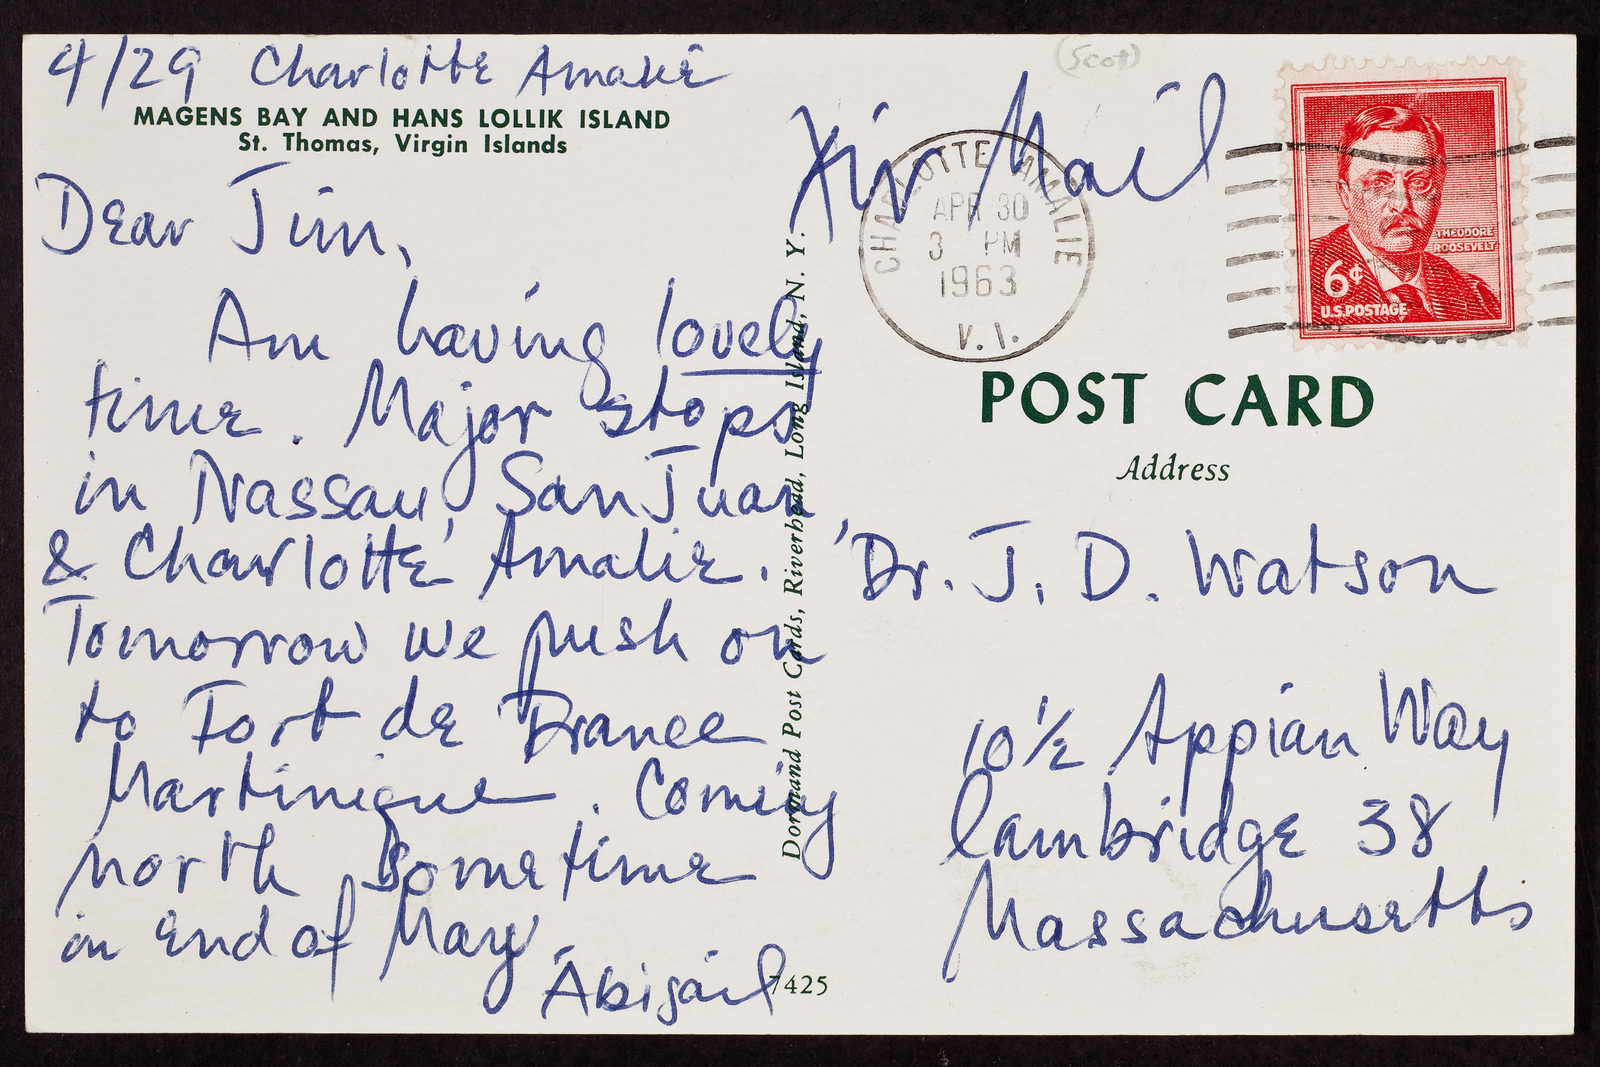 4/29 Charlotte Amalie
MAGENS BAY AND HANS LOLLIK ISLAND
St. Thomas, Virgin Islands
Dear Jim,
Am having lovely
time. Major stops
in Nassau, San Juan,
& Charlotte Amalie.
Tomorrow we push on
to Fort de France
Martinique. Coming
north sometime
in end of May
Abigail
7425
Dormand Post Cards, Riverhead, Long Island, N. Y.
(Scot)
Air Mail
CHARLOTTE AMALIE
APR 30
3 PM
1963
V.I.
THEODORE
ROOSEVELT
6¢
U.S.POSTAGE
POST CARD
Address
Dr. J. D. Watson
10 1/2 Appian Way
Cambridge 38
Massachusetts